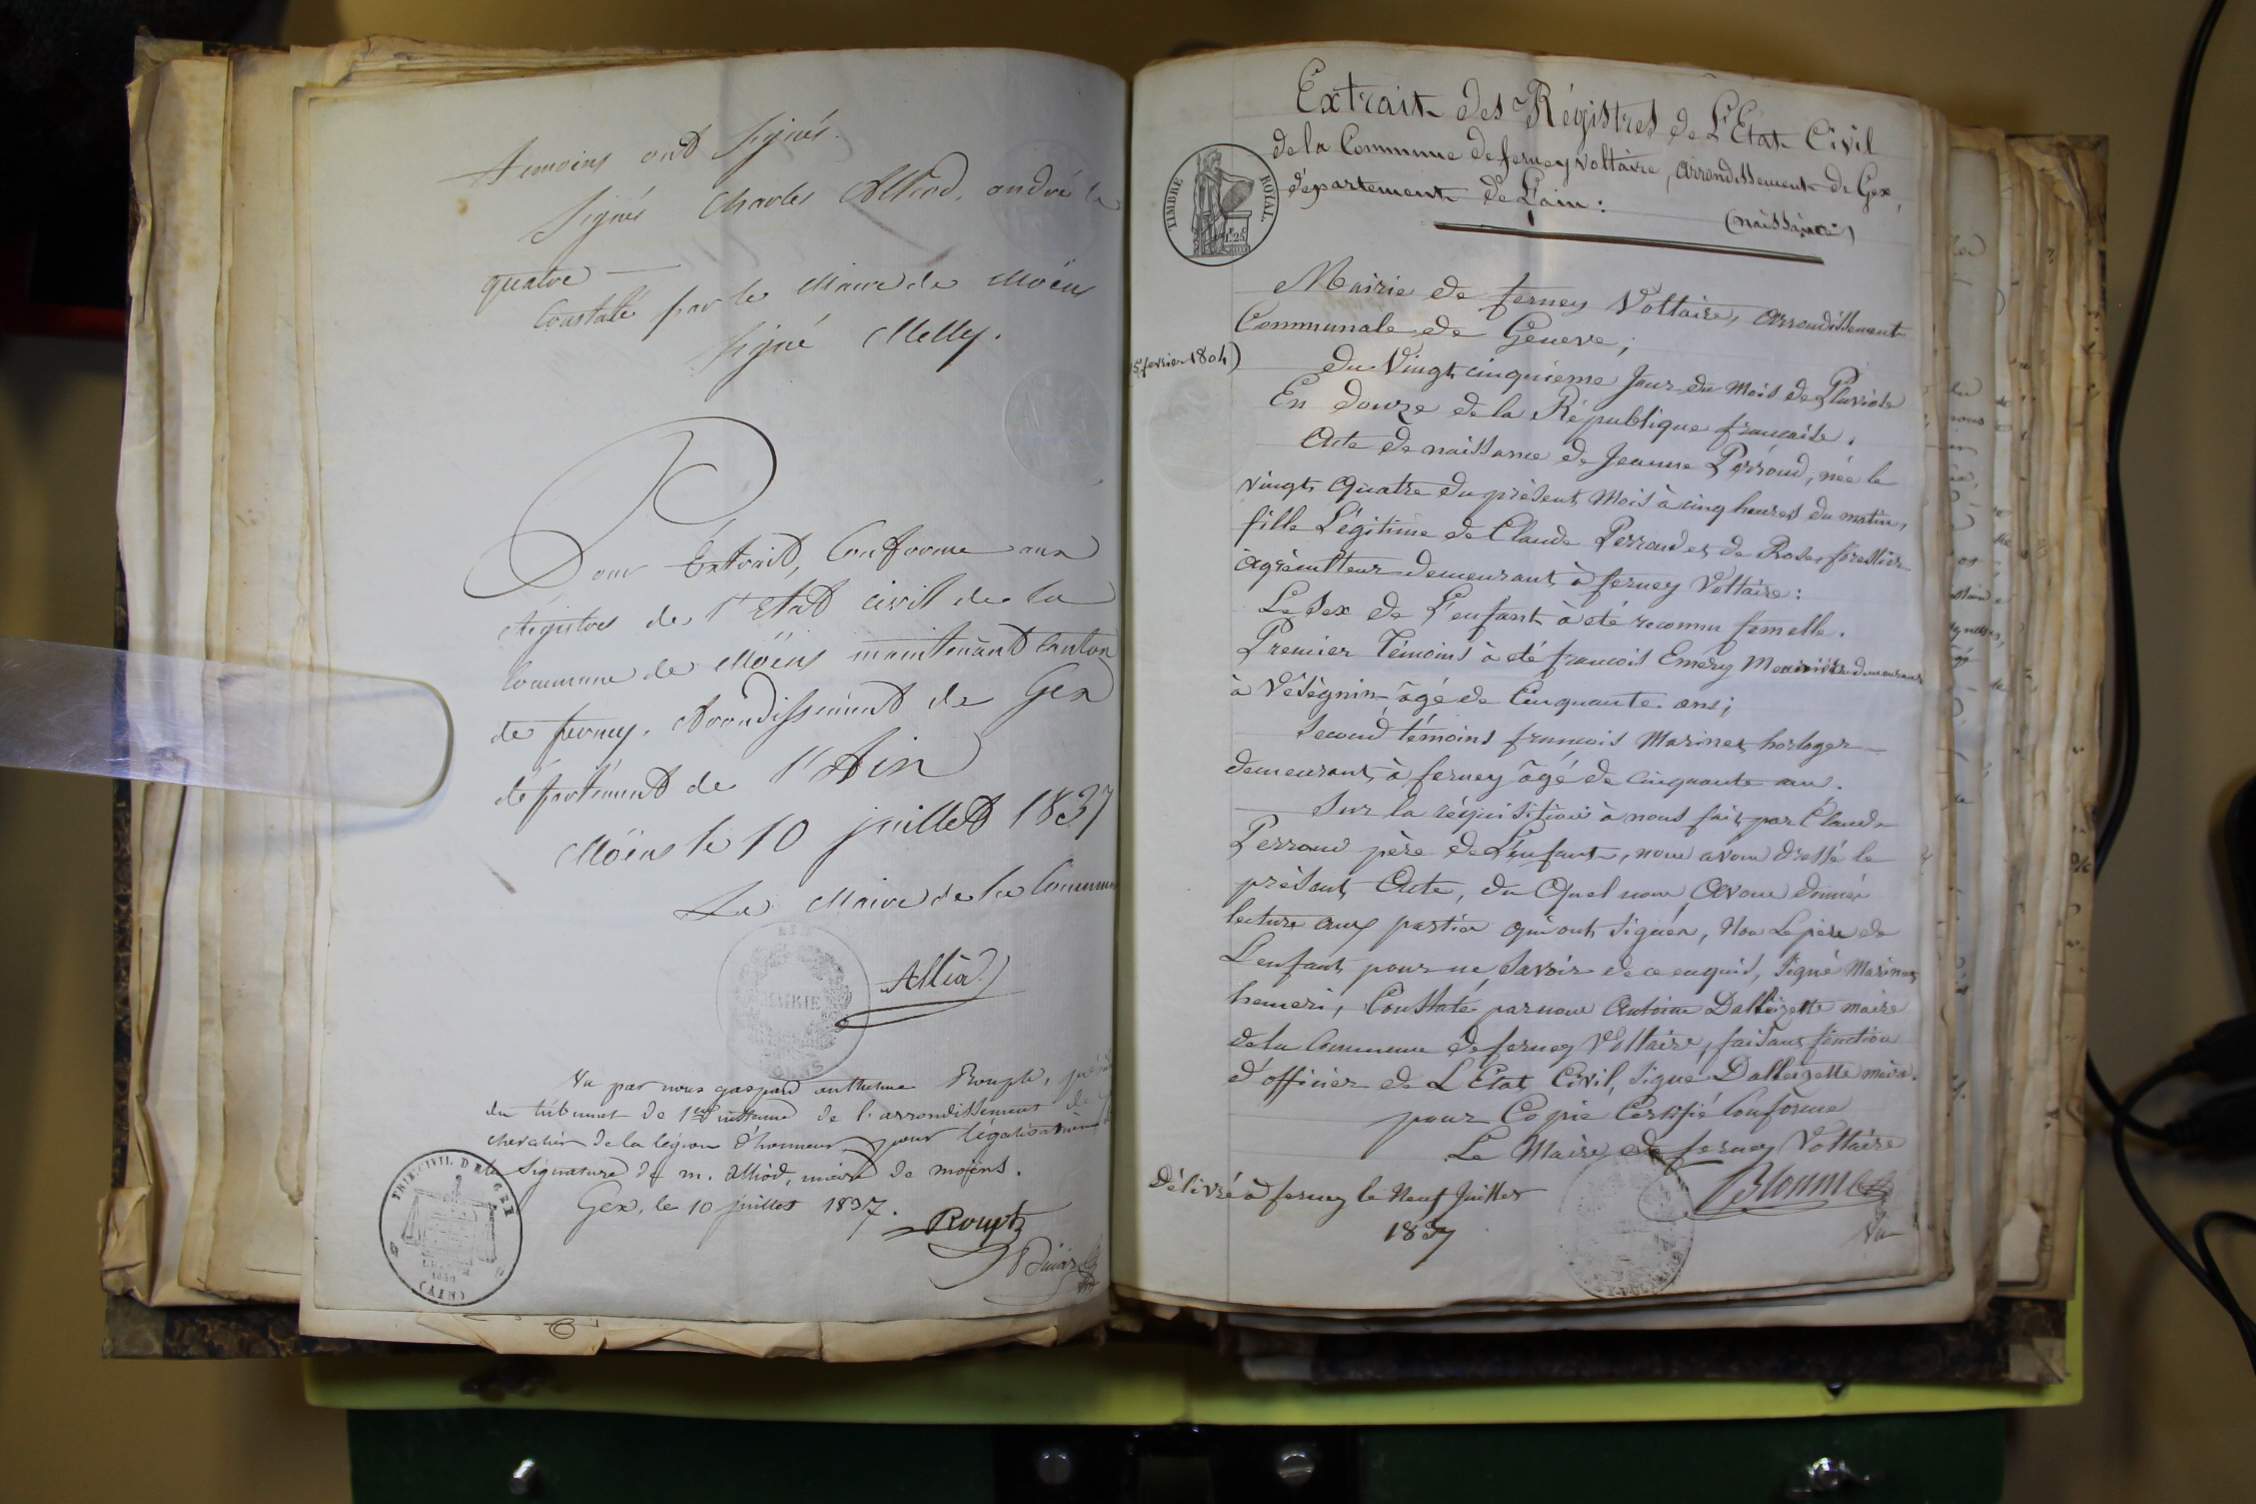 témoins ont signés.
Signés Charles Alliod, andré la
quatre
Constaté par le Maire de Moëns
signé Melly.
Pour Extrait, Conforme aux
Régistres de l'Etat civil de la
Commune de Moëns maintenant Canton
de ferney, Arrondissement de Gex
département de l'Ain
Moëns le 10 juillet 1837
Le Maire de la Commune
Alliod
MAIRIE
Vu par nous gaspard anthelme Rouph,
du tribunal de 1ere instance de l'arrondissement de
chevalier de la légion d'honneur pour légalisation
signature de m. Alliod, maire de moëns.
Gex, le 10 juillet 1837.
Rouph
TRIB. CIVIL DE GEX
(AIN)
Extrait des Régistres de L'Etat Civil
de la Commune de ferney voltaire, arrondissement de Gex,
département de L'ain:
(naissance)
TIMBRE ROYAL.
1F25
Mairie de ferney Voltaire, arrondissement
Communale de Géneve;
(15 fevrier 1804)
du Vingt cinquième Jour du Mois de Pluviose
En douze de la République francaise.
Acte de naissance de Jeanne Perroud, née le
vingt Quatre du présent Mois à cinq heures du matin,
fille Légitime de Claude Perroud et de Rose forestier
agriculteur demeurant à ferney Voltaire:
Le Sex de L'enfant à été reconnu femelle.
Premier Témoins à été francois Eméry demeurant
à Vésègnin âgé de Cinquante ans;
Second témoins francois Marinet horloger
demeurant à ferney âgé de cinquante ans.
Sur la réquisition à nous fait par Claude
Perroud père de L'enfant, nous avons dressé le
présent Acte, du Quel nous Avons donnée
lecture aux parties qui ont signés, Non Le père de
L'enfant pour ne Savoir de ce enquis, signé Marinet
hemeri, Constaté par nous Antoine Dalleizette maire
de la Commune de ferney Voltaire, faisant fonction
d'officier de L'Etat Civil, signé Dalleizette maire.
pour Copie Certifié Conforme
Le Maire de ferney Voltaire
Délivré à ferney le Neuf Juillet
1837
Vu